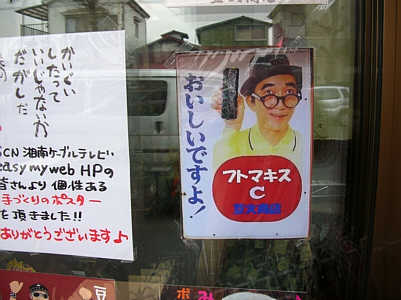 かいぐい
したって
いいじゃないか
だがしだ
SCN 湘南ケーブルテレビ
easy myweb HPの
皆さんより 個性ある
手づくりのポスター
を頂きました!!
ありがとうございます♪
おいしいですよ!
フトマキス
C